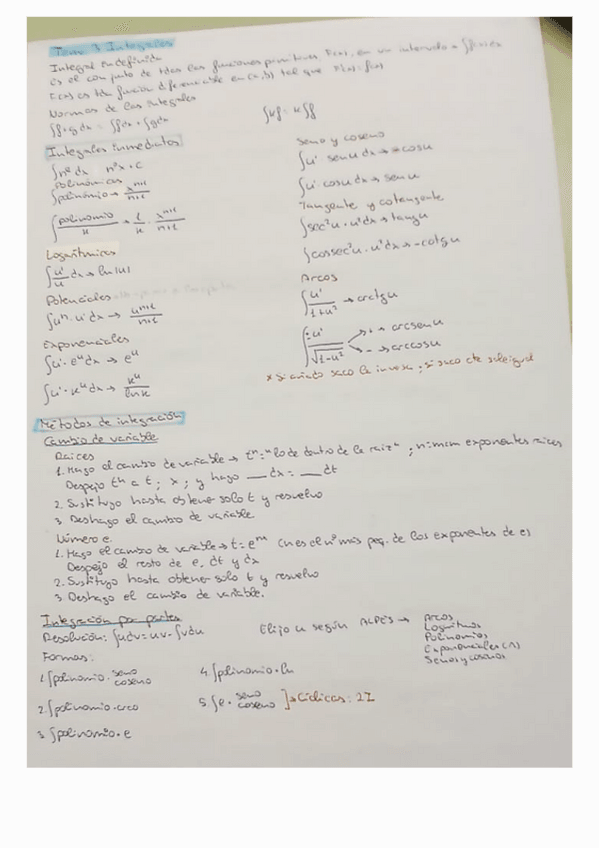 Tema 3 Integrales
Integral Indefinida
es el conjunto de todas las funciones primitivas F(x), en un intervalo → ∫f(x)dx
F(x) es una función diferenciable en (a,b) tal que F'(x)=f(x)
Normas de las integrales
∫f+g dx = ∫f dx + ∫g dx
∫kf = k∫f
Integrales inmediatas
∫nº dx nºx + C
Polinómicas
∫polinomio → xⁿ⁺¹/n+1
∫polinomio/k → 1/k · xⁿ⁺¹/n+1
Logarítmicas
∫u'/u dx → ln|u|
Potenciales
∫uⁿ · u' dx → uⁿ⁺¹/n+1
Exponenciales
∫u' · eᵘ dx → eᵘ
∫u' · kᵘ dx → kᵘ/ln k
Seno y coseno
∫u' senu dx → -cosu
∫u' · cosu dx → senu
Tangente y cotangente
∫sec²u · u' dx → tangu
∫cossec²u · u' dx → -cotgu
Arcos
∫u'/1+u² → arctgu
∫±u'/√1-u² → + → arcsenu
→ - → arccosu
* Si añado saco la inversa, si saco cte sale igual
Métodos de integración
Cambio de variable
Raíces
1. Hago el cambio de variable → tⁿ = "lo de dentro de la raiz", n: mcm exponentes raices
Despejo tⁿ a t; x; y hago __dx = __dt
2. Sustituyo hasta obtener solo t y resuelvo
3. Deshago el cambio de variable
Número e
1. Hago el cambio de variable → t = eᵐ (n es el nº más peq. de los exponentes de e)
Despejo el resto de e, dt y dx
2. Sustituyo hasta obtener solo t y resuelvo
3. Deshago el cambio de variable.
Integración por partes
Resolución: ∫udv = uv - ∫vdu
Elijo u según ALPES →
Arcos
Logaritmos
Polinomios
Exponenciales (^)
Senos y cosenos
Formas:
1. ∫polinomio · seno
coseno
2. ∫polinomio · arco
3. ∫polinomio · e
4. ∫polinomio · ln
5. ∫e · seno
coseno ] → Cíclicas: 2I